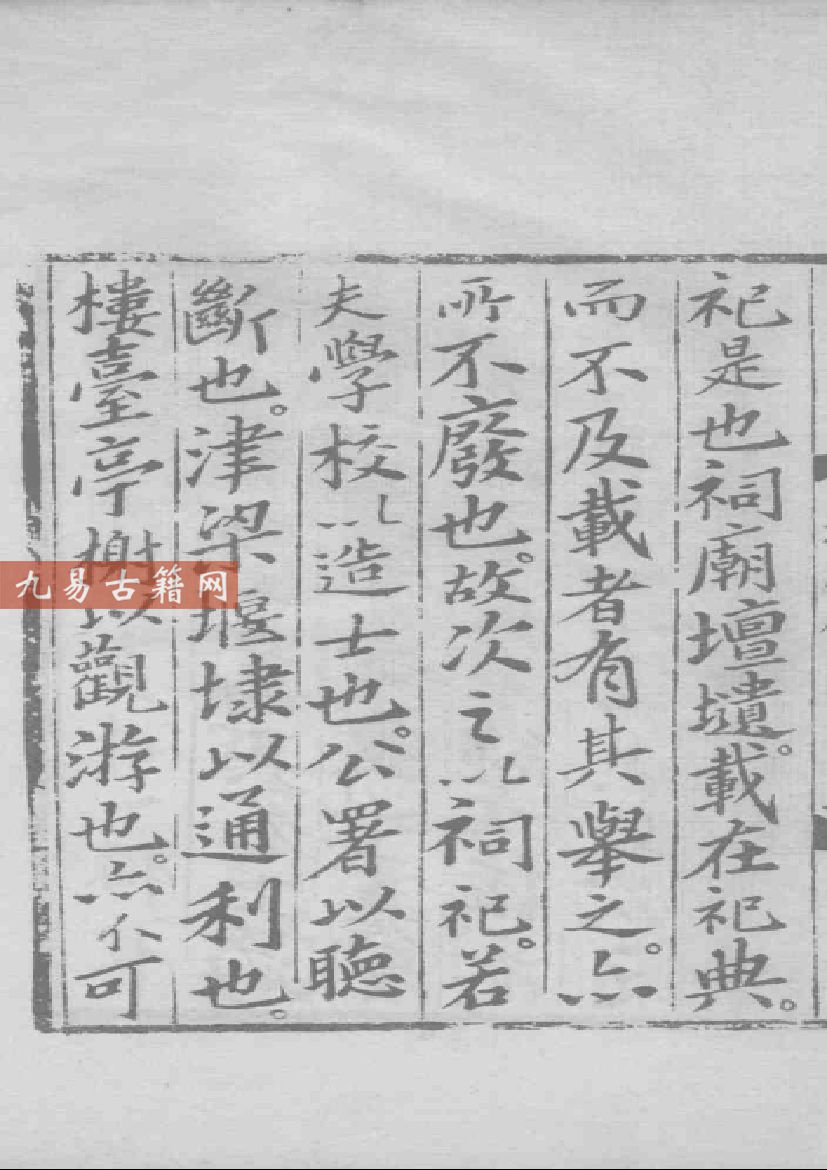 祀是也祠廟壇壝。載在祀典。
而不及載者有其舉之。亦
所不廢也。故次之以祠祀。若
夫學校以造士也。公署以聽
斷也。津梁堰埭以通利也。
樓臺亭榭以觀游也。亦不可
九易古籍网